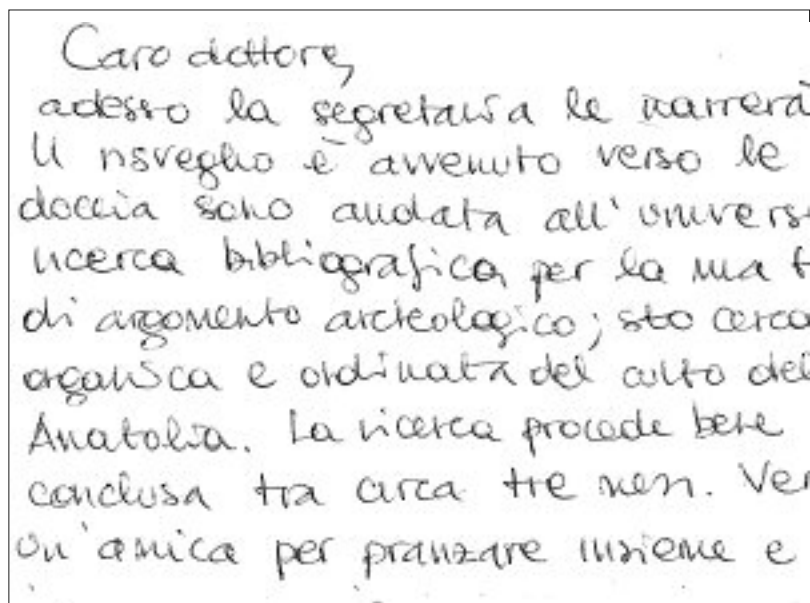 Caro dottore,
adesso la segretaria le narrerà
Il risveglio è avvenuto verso le
doccia sono andata all'univers
ricerca bibliografica, per la mia t
di argomento archeologico; sto cerca
organica e ordinata del culto del
Anatolia. La ricerca procede bene
conclusa tra circa tre mesi. Ver
un'amica per pranzare insieme e